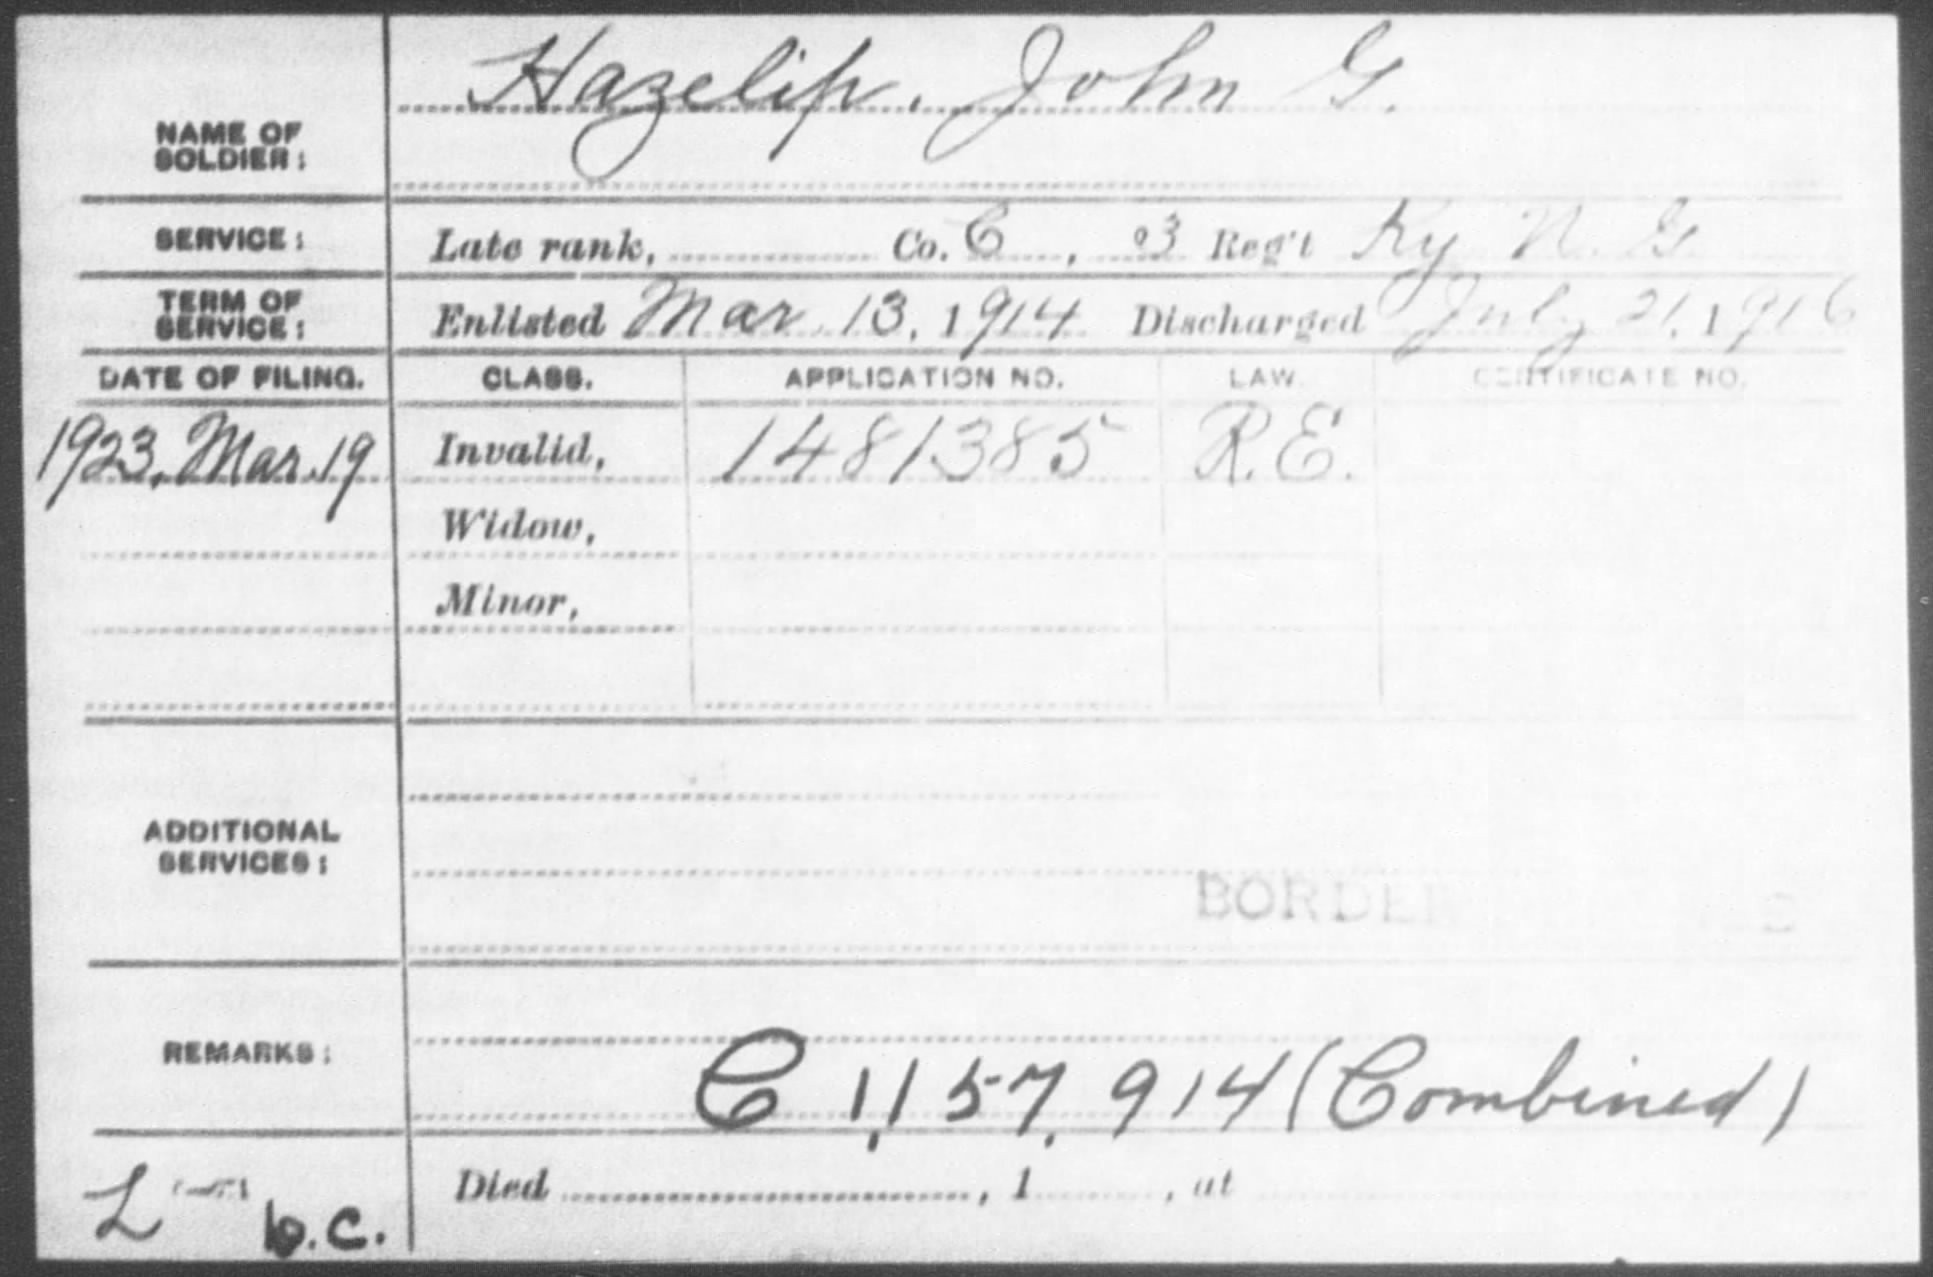 Hazelip, John G.
NAME OF
SOLDIER:
SERVICE: Late rank, Co. C, 3 Reg't Ky. N. G.
TERM OF
SERVICE: Enlisted Mar. 13, 1914 Discharged July 21, 1916
DATE OF FILING. CLASS. APPLICATION NO. LAW. CERTIFICATE NO.
1923, Mar. 19 Invalid, 1481385 R.E.
Widow,
Minor,
ADDITIONAL
SERVICES:
BORDER
REMARKS:
C 1,157,914 (Combined)
Died , 1 , at
L b.c.